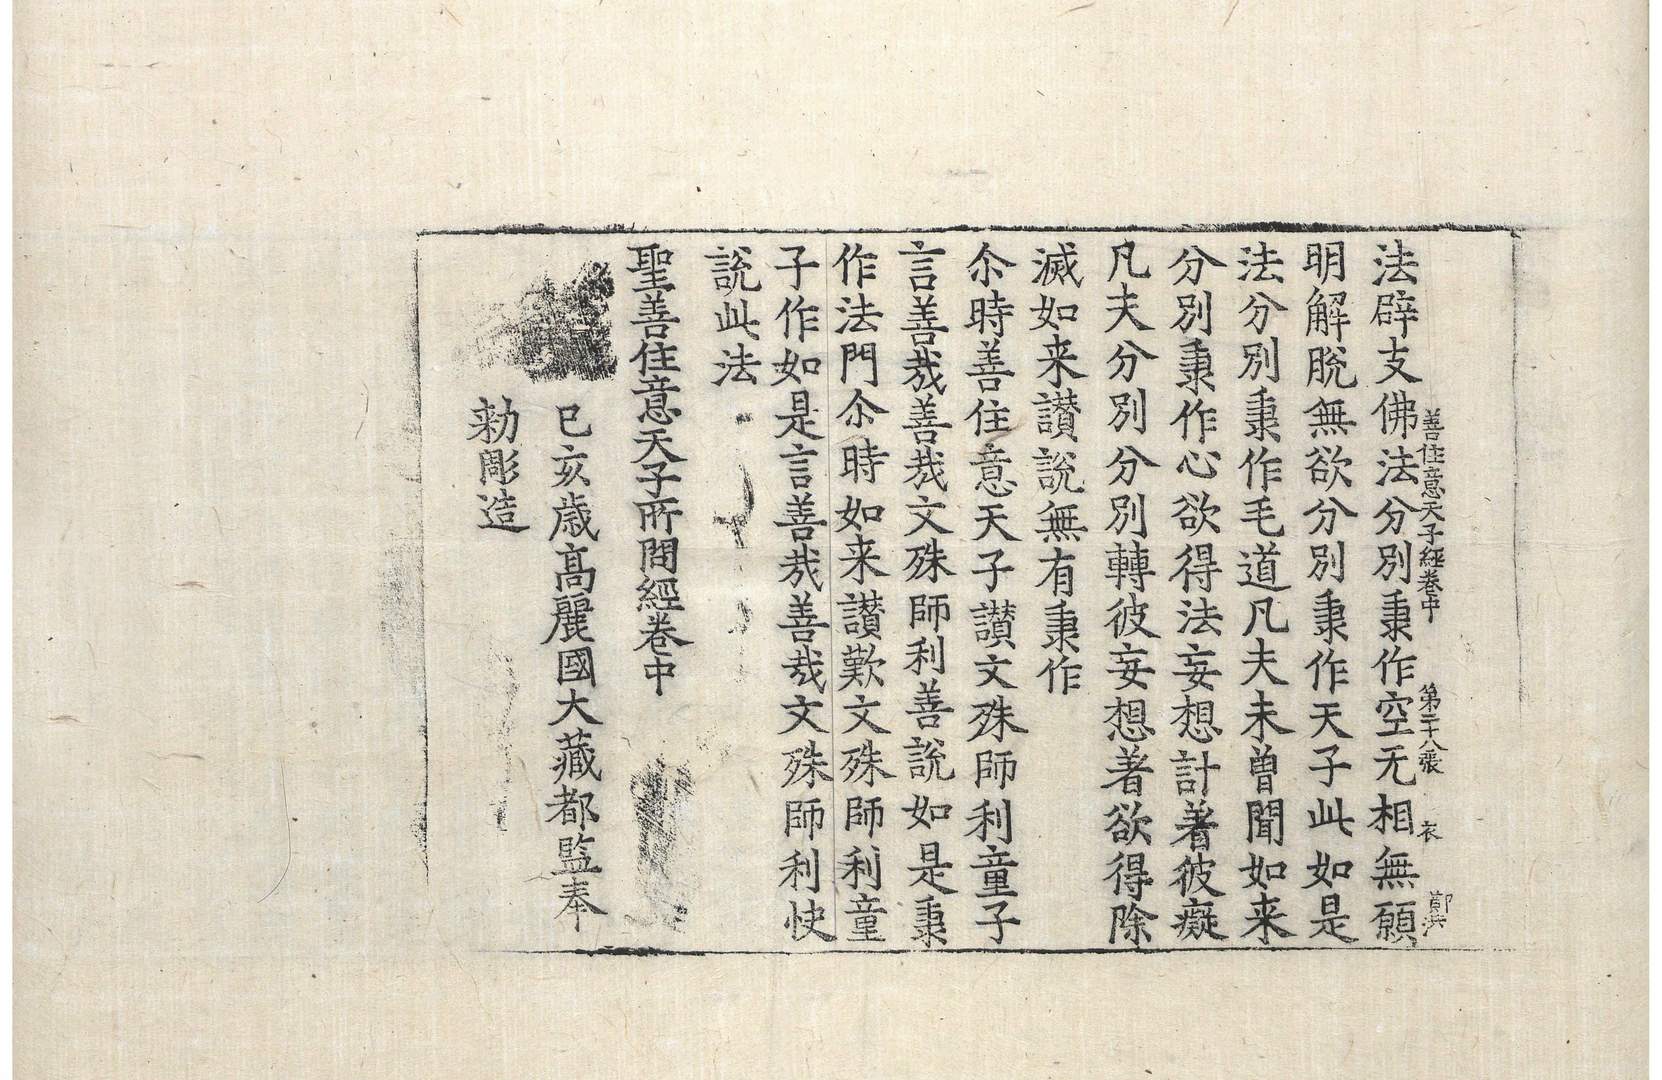 善住意天子經卷中 第二十八張 衣
法辟支佛法分別秉作空无相無願
明解脫無欲分別秉作天子此如是
法分別秉作毛道凡夫未曾聞如来
分別秉作心欲得法妄想計著彼癡
凡夫分別分別轉彼妄想著欲得除
滅如来讃說無有秉作
尒時善住意天子讃文殊師利童子
言善㢤善㢤文殊師利善說如是秉
作法門尒時如来讃歎文殊師利童
子作如是言善㢤善㢤文殊師利快
說此法
聖善住意天子所問經卷中
己亥歲髙麗國大藏都監奉
勅彫造